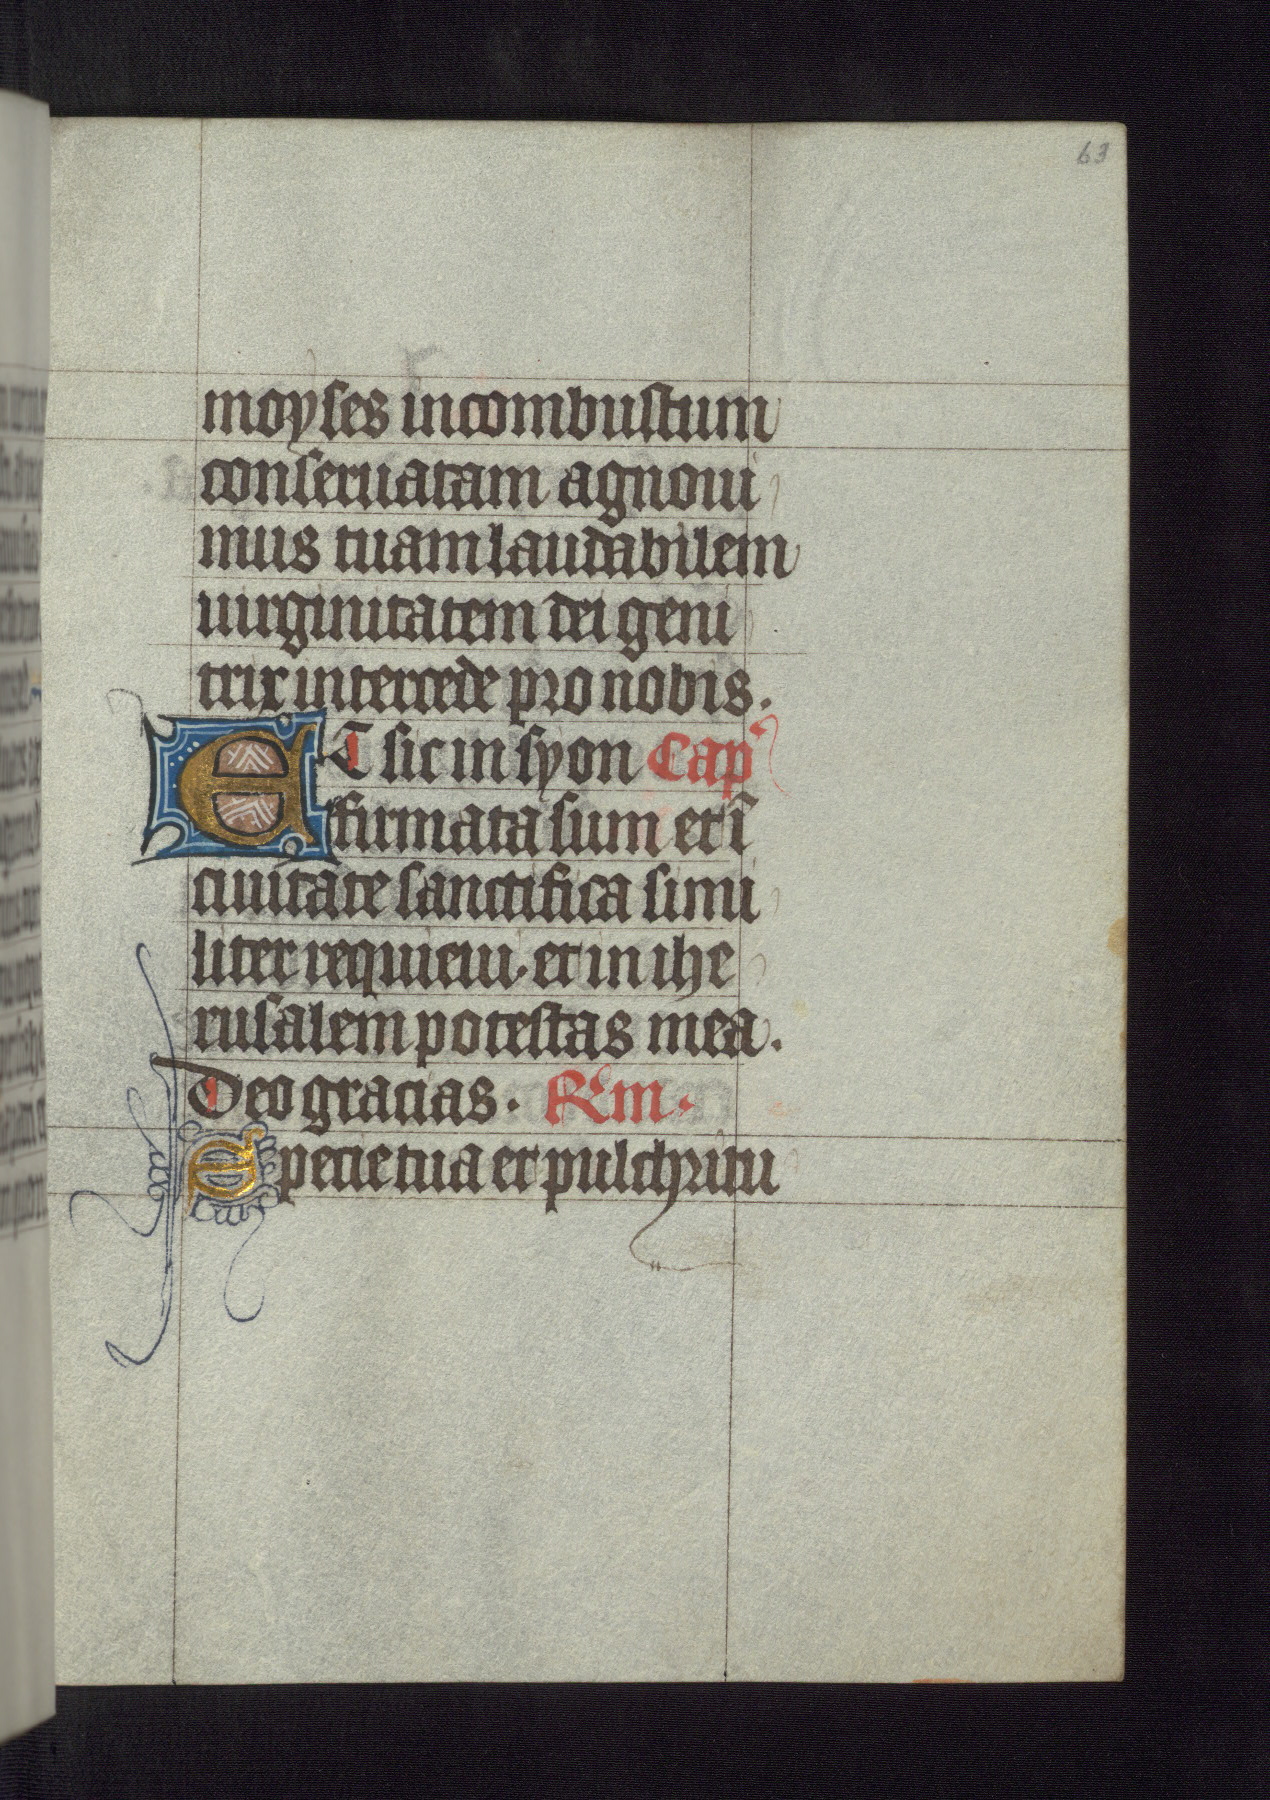 63
moyses incombustum
conseruatam agnoui
mus tuam laudabilem
uirginitatem dei geni
trix intercede pro nobis.
ET sic in syon Cap
firmata sum et ī
ciuitate sanctifica simi
liter requieui. et in ihe
rusalem potestas mea.
Deo gracias. Rm.
Specie tua et pulchritu